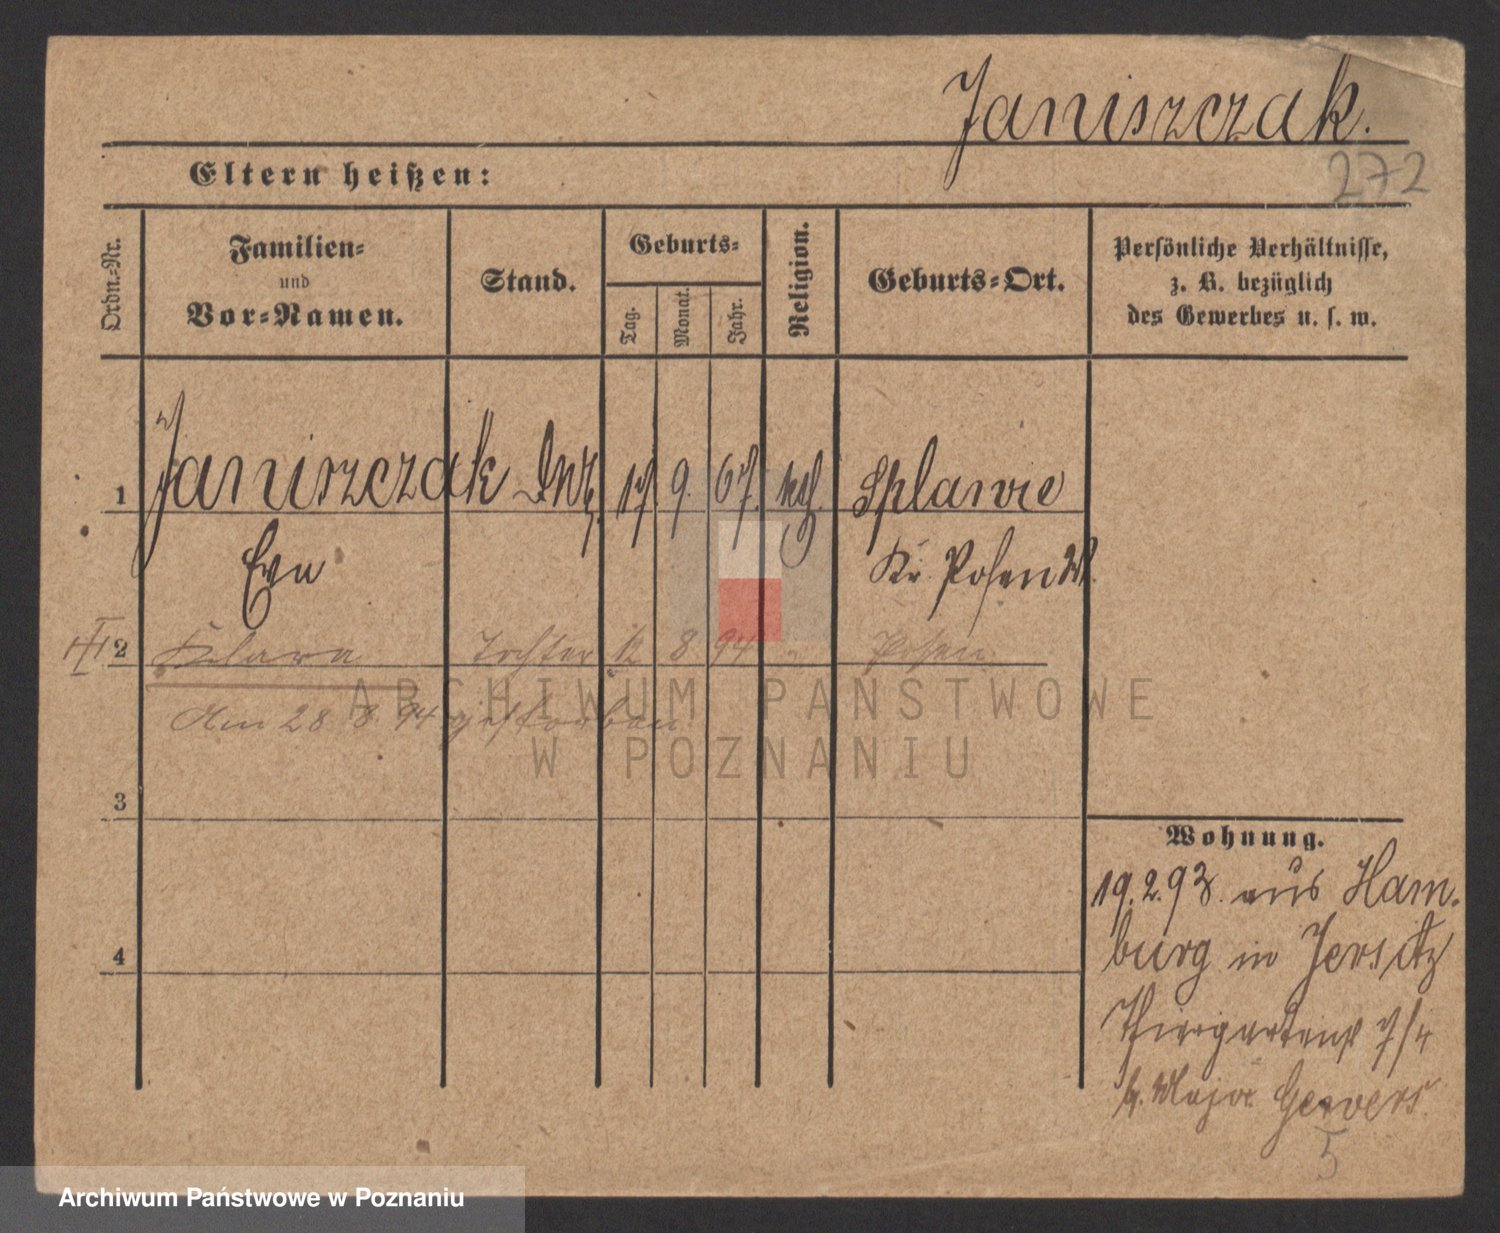 Janiszczak.
272
Eltern heißen:
Ordn.-Nr.
Familien-
und
Vor-Namen.
Stand.
Geburts-
Tag.
Monat.
Jahr.
Religion.
Geburts-Ort.
Persönliche Verhältnisse,
z. B. bezüglich
des Gewerbes u. s. w.
1 Janiszczak 17. 9. 67. kath. Splawie
Eva Kr. Posen W.
2 Klara Tochter 12 8 94 Posen
Am 28 8 94 gestorben
ARCHIWUM PAŃSTWOWE
W POZNANIU
3
Wohnung.
19.2.93. aus Ham-
burg in Jersitz
4
Thiergartenst 7/4
b. Major Gewers.
5
Archiwum Państwowe w Poznaniu